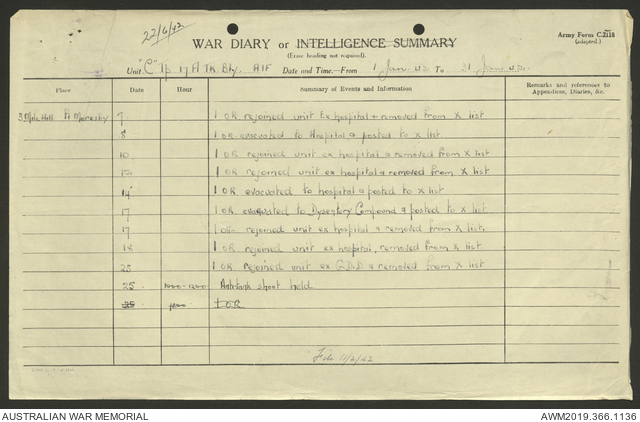 22/6/42
WAR DIARY or INTELLIGENCE SUMMARY
(Erase heading not required).
Army Form C.2118
(adapted.)
Unit "C" Tp 17 A TK Bty. AIF Date and Time.—From 1 Jan 42 To 31 June 42.
Place Date Hour Summary of Events and Information Remarks and references to Appendices, Diaries, &c.
3 Mile Hill Pt Moresby 7 1 OR rejoined unit Ex hospital & removed from X list
8 1 OR evacuated to Hospital & posted to X list
10 1 OR rejoined unit ex hospital & removed from X list
12 1 OR rejoined unit ex hospital & removed from X list
14 1 OR evacuated to hospital & posted to X list
17 1 OR evacuated to Dysentery Compound & posted to X list
17 1 rejoined unit ex hospital & removed from X list.
18 1 OR rejoined unit ex hospital, removed from X list
25 1 OR rejoined unit ex & removed from X list
25 1000-1200 Anti-tank shoot held
25 1 OR
File 11/2/42
AUSTRALIAN WAR MEMORIAL AWM2019.366.1136